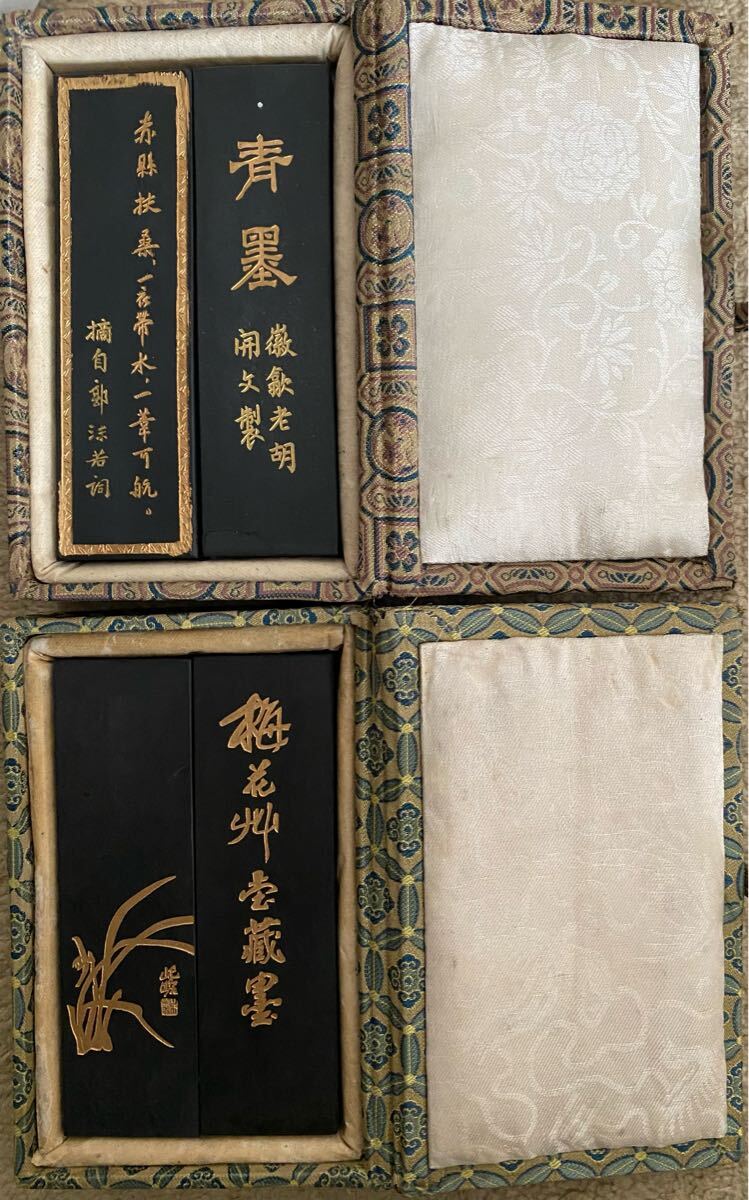 青墨
徽歙老胡
開文製
赤縣扶桑、一衣帶水、一葦可航。
摘自郭沫若詞
梅花艸堂藏墨